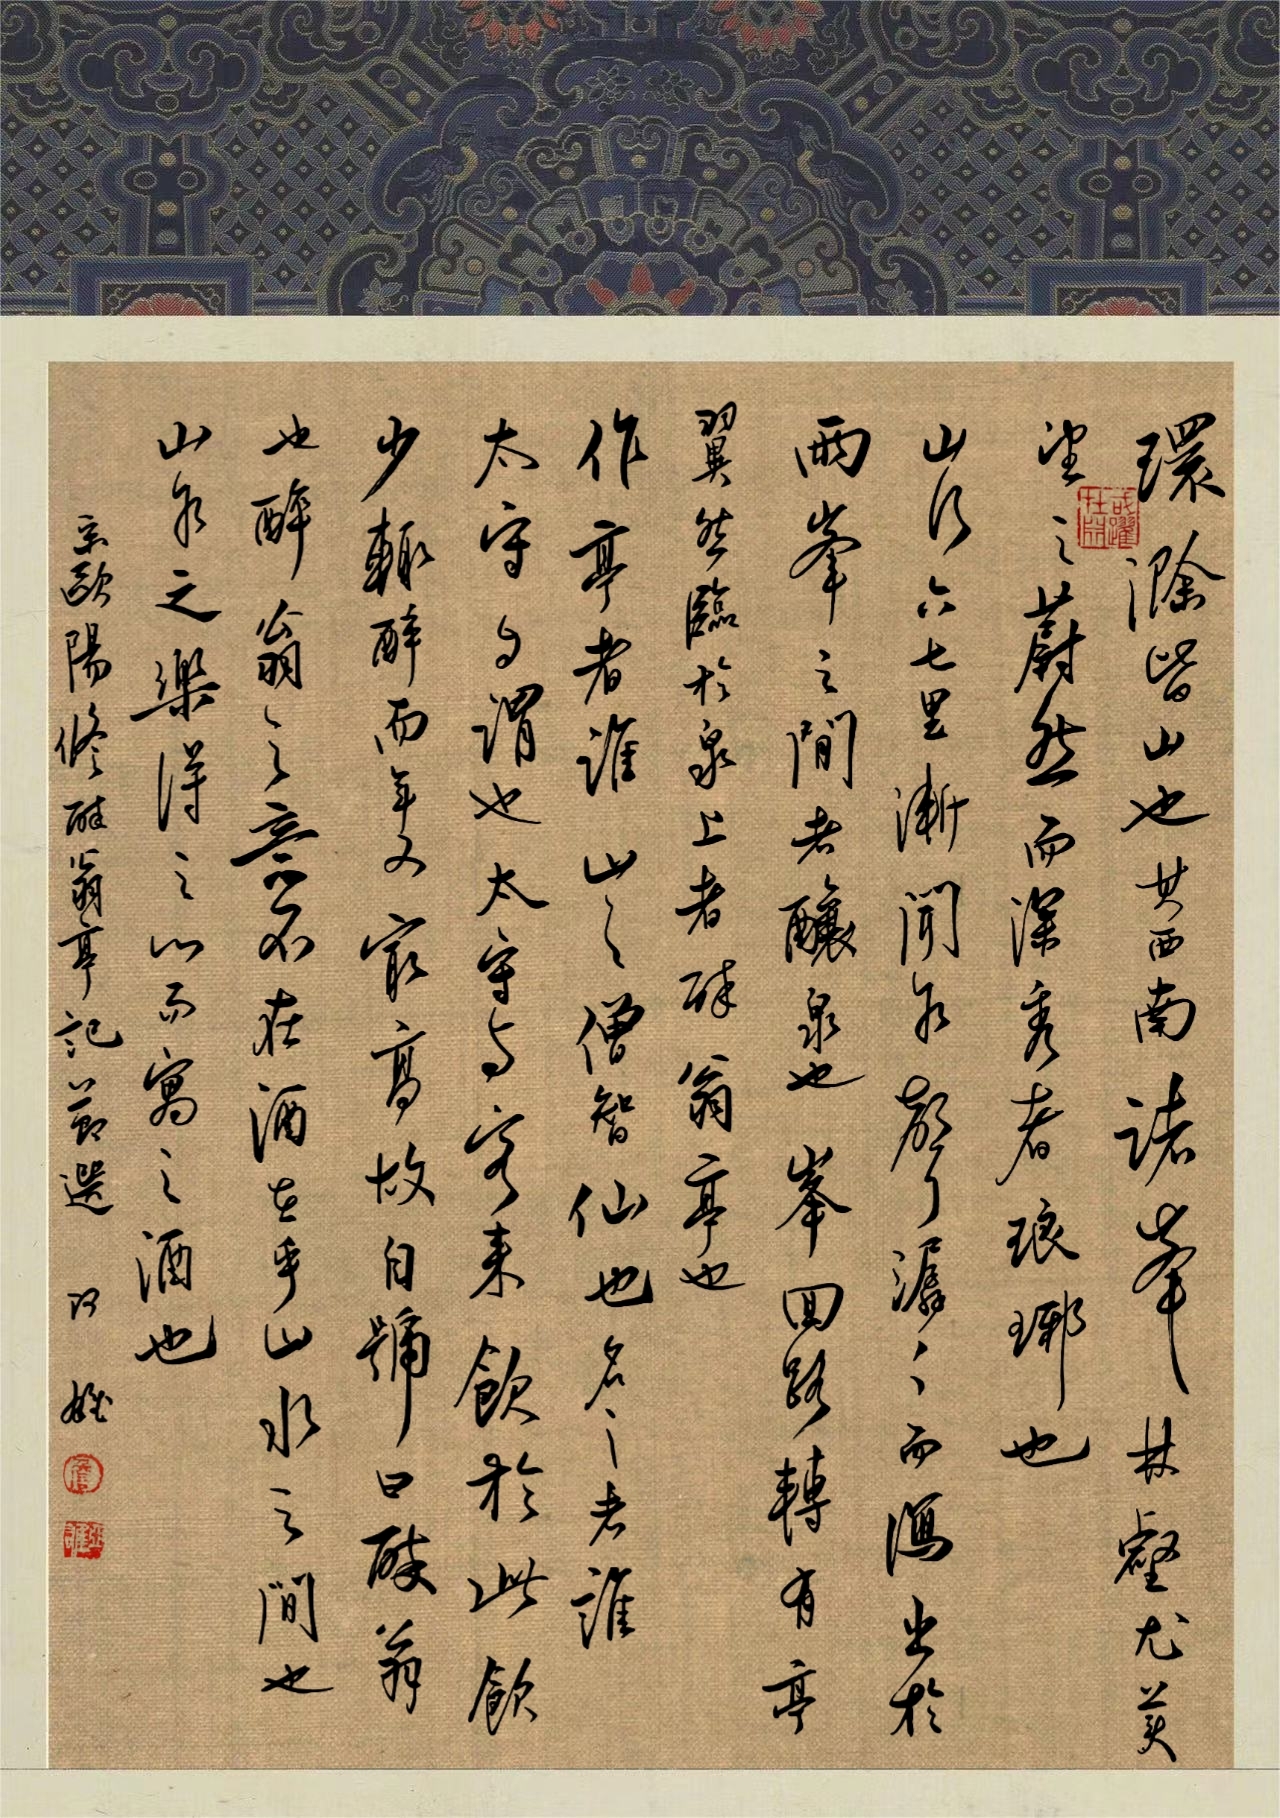 環滁皆山也其西南諸峯林壑尤美
或躍在淵
望之蔚然而深秀者琅琊也
山行六七里漸聞水聲潺々而瀉出於
兩峯之間者釀泉也峯回路轉有亭
翼然臨於泉上者醉翁亭也
作亭者誰山之僧智仙也名之者誰
太守自謂也太守与客来飲於此飲
少輒醉而年又最高故自號曰醉翁
也醉翁之意不在酒在乎山水之間也
山水之樂得之心而寓之酒也
宋歐陽修醉翁亭記節選